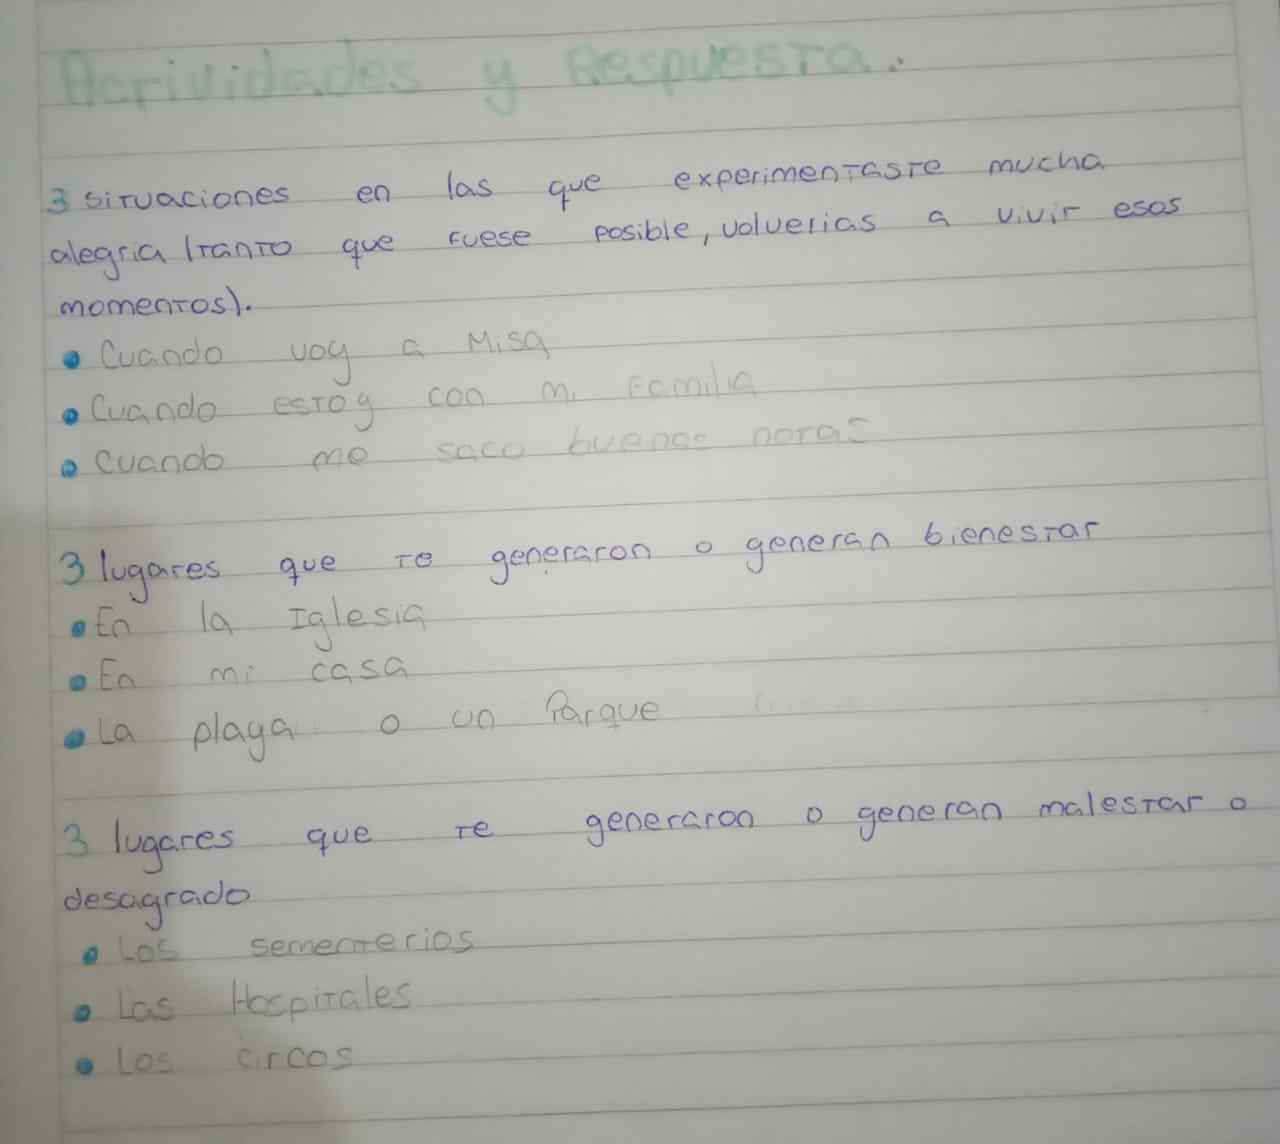 Actividades y Respuesta.
3 situaciones en las que experimentaste mucha
alegria (tanto que fuese posible, volverias a vivir esos
momentos).
• Cuando voy a Misa
• Cuando estoy con mi Familia
• Cuando me saco buenas notas
3 lugares que te generaron o generan bienestar
• En la Iglesia
• En mi casa
• La playa o un Parque
3 lugares que te generaron o generan malestar o
desagrado
• Los sementerios
• Las Hospitales
• Los circos